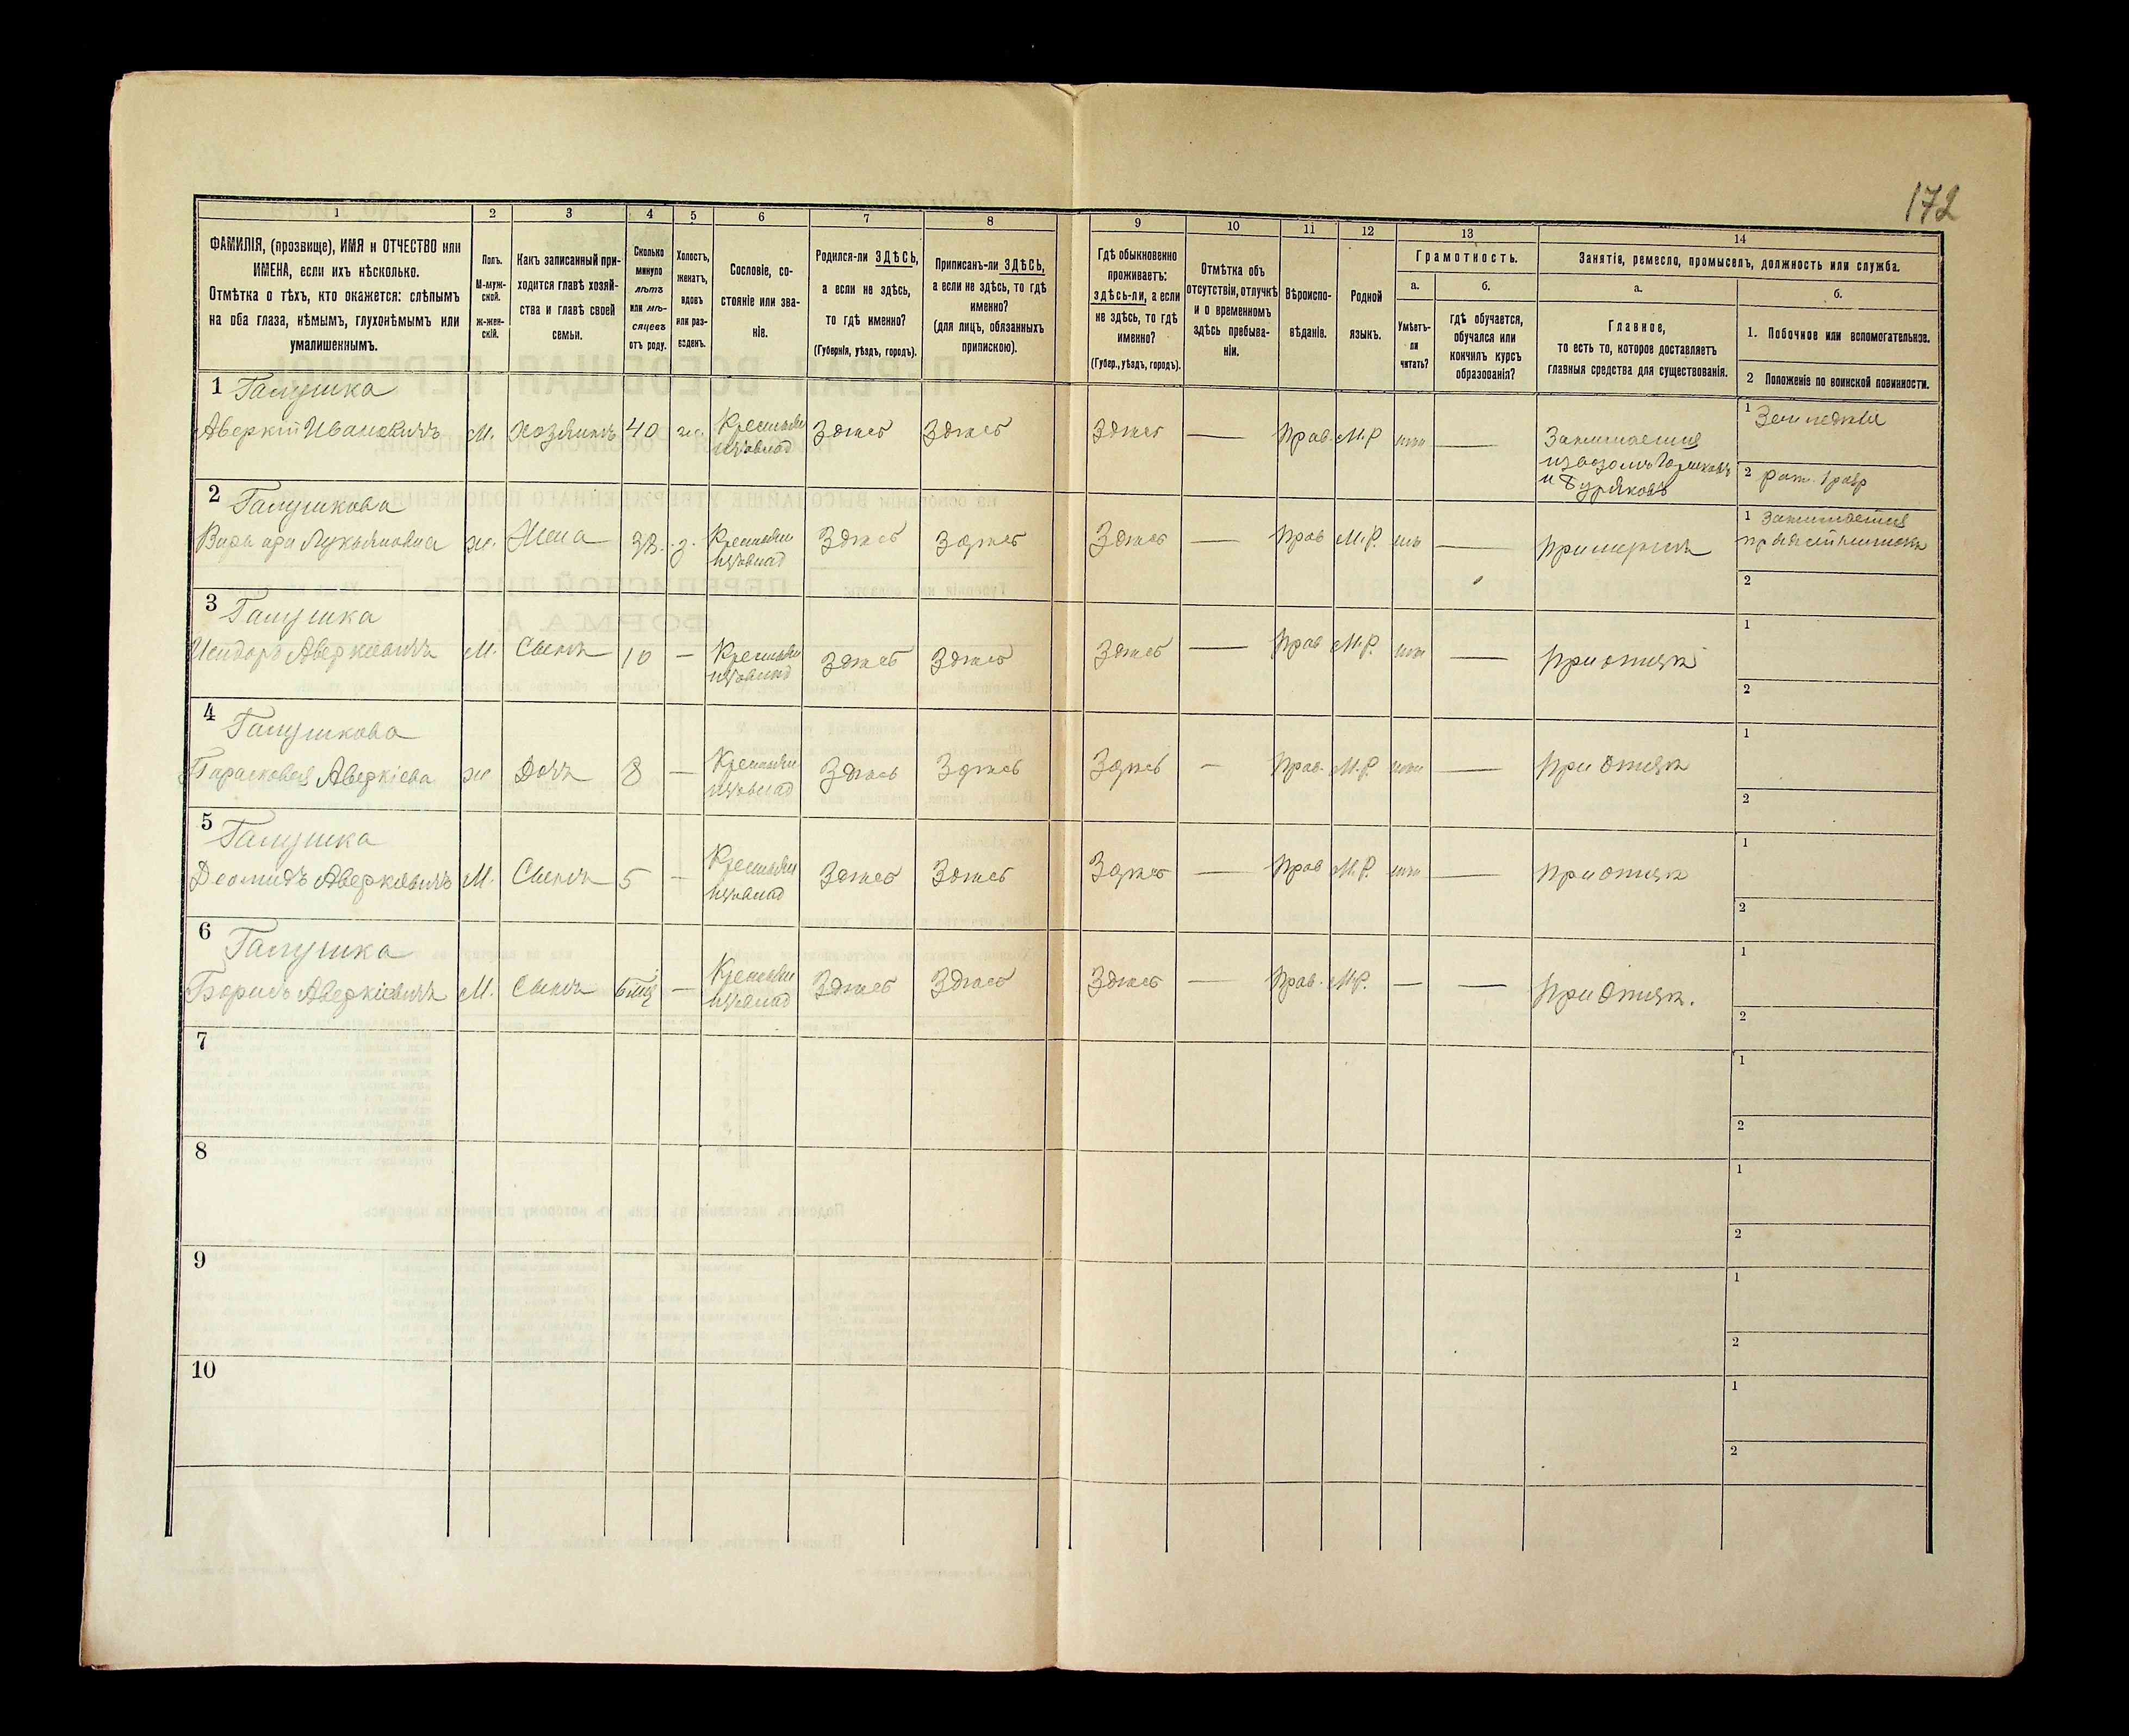 172
1 2 3 4 5 6 7 8 9 10 11 12 13 14
ФАМИЛІЯ, (прозвище), ИМЯ и ОТЧЕСТВО или
ИМЕНА, если ихъ нѣсколько.
Отмѣтка о тѣхъ, кто окажется: слѣпымъ
на оба глаза, нѣмымъ, глухонѣмымъ или
умалишеннымъ.
Полъ.
М-муж-
ской.
ж-жен-
скій.
Какъ записанный при-
ходится главѣ хозяй-
ства и главѣ своей
семьи.
Сколько
минуло
лѣтъ
или мѣ-
сяцевъ
отъ роду.
Холостъ,
женатъ,
вдовъ
или раз-
веденъ.
Сословіе, со-
стояніе или зва-
ніе.
Родился-ли ЗДѢСЬ,
а если не здѣсь,
то гдѣ именно?
(Губернія, уѣздъ, городъ).
Приписанъ-ли ЗДѢСЬ,
а если не здѣсь, то гдѣ
именно?
(для лицъ, обязанныхъ
припискою).
Гдѣ обыкновенно
проживаетъ:
здѣсь-ли, а если
не здѣсь, то гдѣ
именно?
(Губер., уѣздъ, городъ).
Отмѣтка объ
отсутствіи, отлучкѣ
и о временномъ
здѣсь пребыва-
ніи.
Вѣроиспо-
вѣданіе.
Родной
языкъ.
Грамотность.
а.
Умѣетъ-
ли
читать?
б.
гдѣ обучается,
обучался или
кончилъ курсъ
образованія?
Занятіе, ремесло, промыселъ, должность или служба.
а.
Главное,
то есть то, которое доставляетъ
главныя средства для существованія.
б.
1. Побочное или вспомогательное.
2 Положеніе по воинской повинности.
1 Галушка
Аверкій Ивановичъ М. хозяинъ 40 ж. Крестьян Здѣсь Здѣсь Здѣсь — Прав. М.Р. — Занимается
и Буряковъ
1 Земледѣл
2 рат. 1 разр
2 Галушкова
Лукьяновна ж. Жена З. Крестьян Здѣсь Здѣсь Здѣсь — Прав М.Р. — при мужѣ
1 Занимается
2
3 Галушка
Исидоръ Аверкіевичъ М. Сынъ 10 — Крестьян Здѣсь Здѣсь Здѣсь — Прав М.Р. — При отцѣ
1
2
4 Галушкова
Парасковея Аверкіева ж Дочь 8 — Крестьян Здѣсь Здѣсь Здѣсь — Прав. М.Р. — При отцѣ
1
2
5 Галушка
Деомидъ Аверкіевичъ М. Сынъ 5 — Крестьян Здѣсь Здѣсь Здѣсь — Прав М.Р. — При отцѣ
1
2
6 Галушка
Борисъ Аверкіевичъ М. Сынъ — Крестьян Здѣсь Здѣсь Здѣсь — Прав. М.Р. — — При отцѣ.
1
2
7
1
2
8
1
2
9
1
2
10
1
2